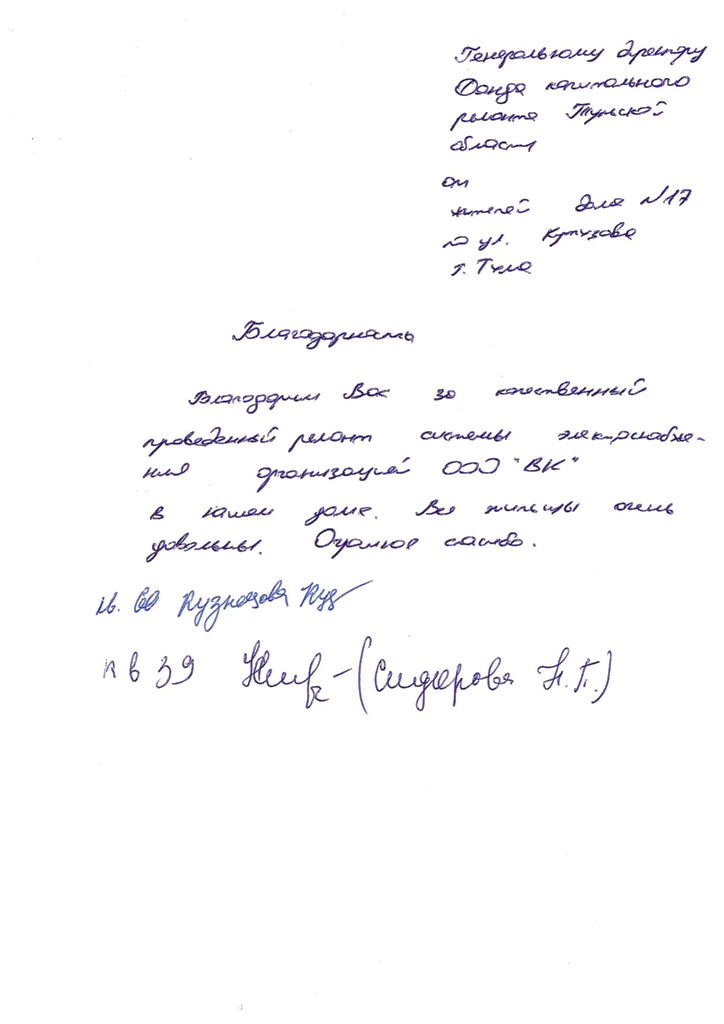 Генеральному директору
Фонда капитального
ремонта Тульской
области
от
жителей дома №17
по ул. Кутузова
г. Тула
Благодарность
Благодарим Вас за качественный
проведенный ремонт системы электроснабже-
ния организацией ООО "ВК"
в нашем доме. Все жильцы очень
довольны. Огромное спасибо.
кв. 60 Кузнецова Куз
кв 39 (Сидорова Н.П.)